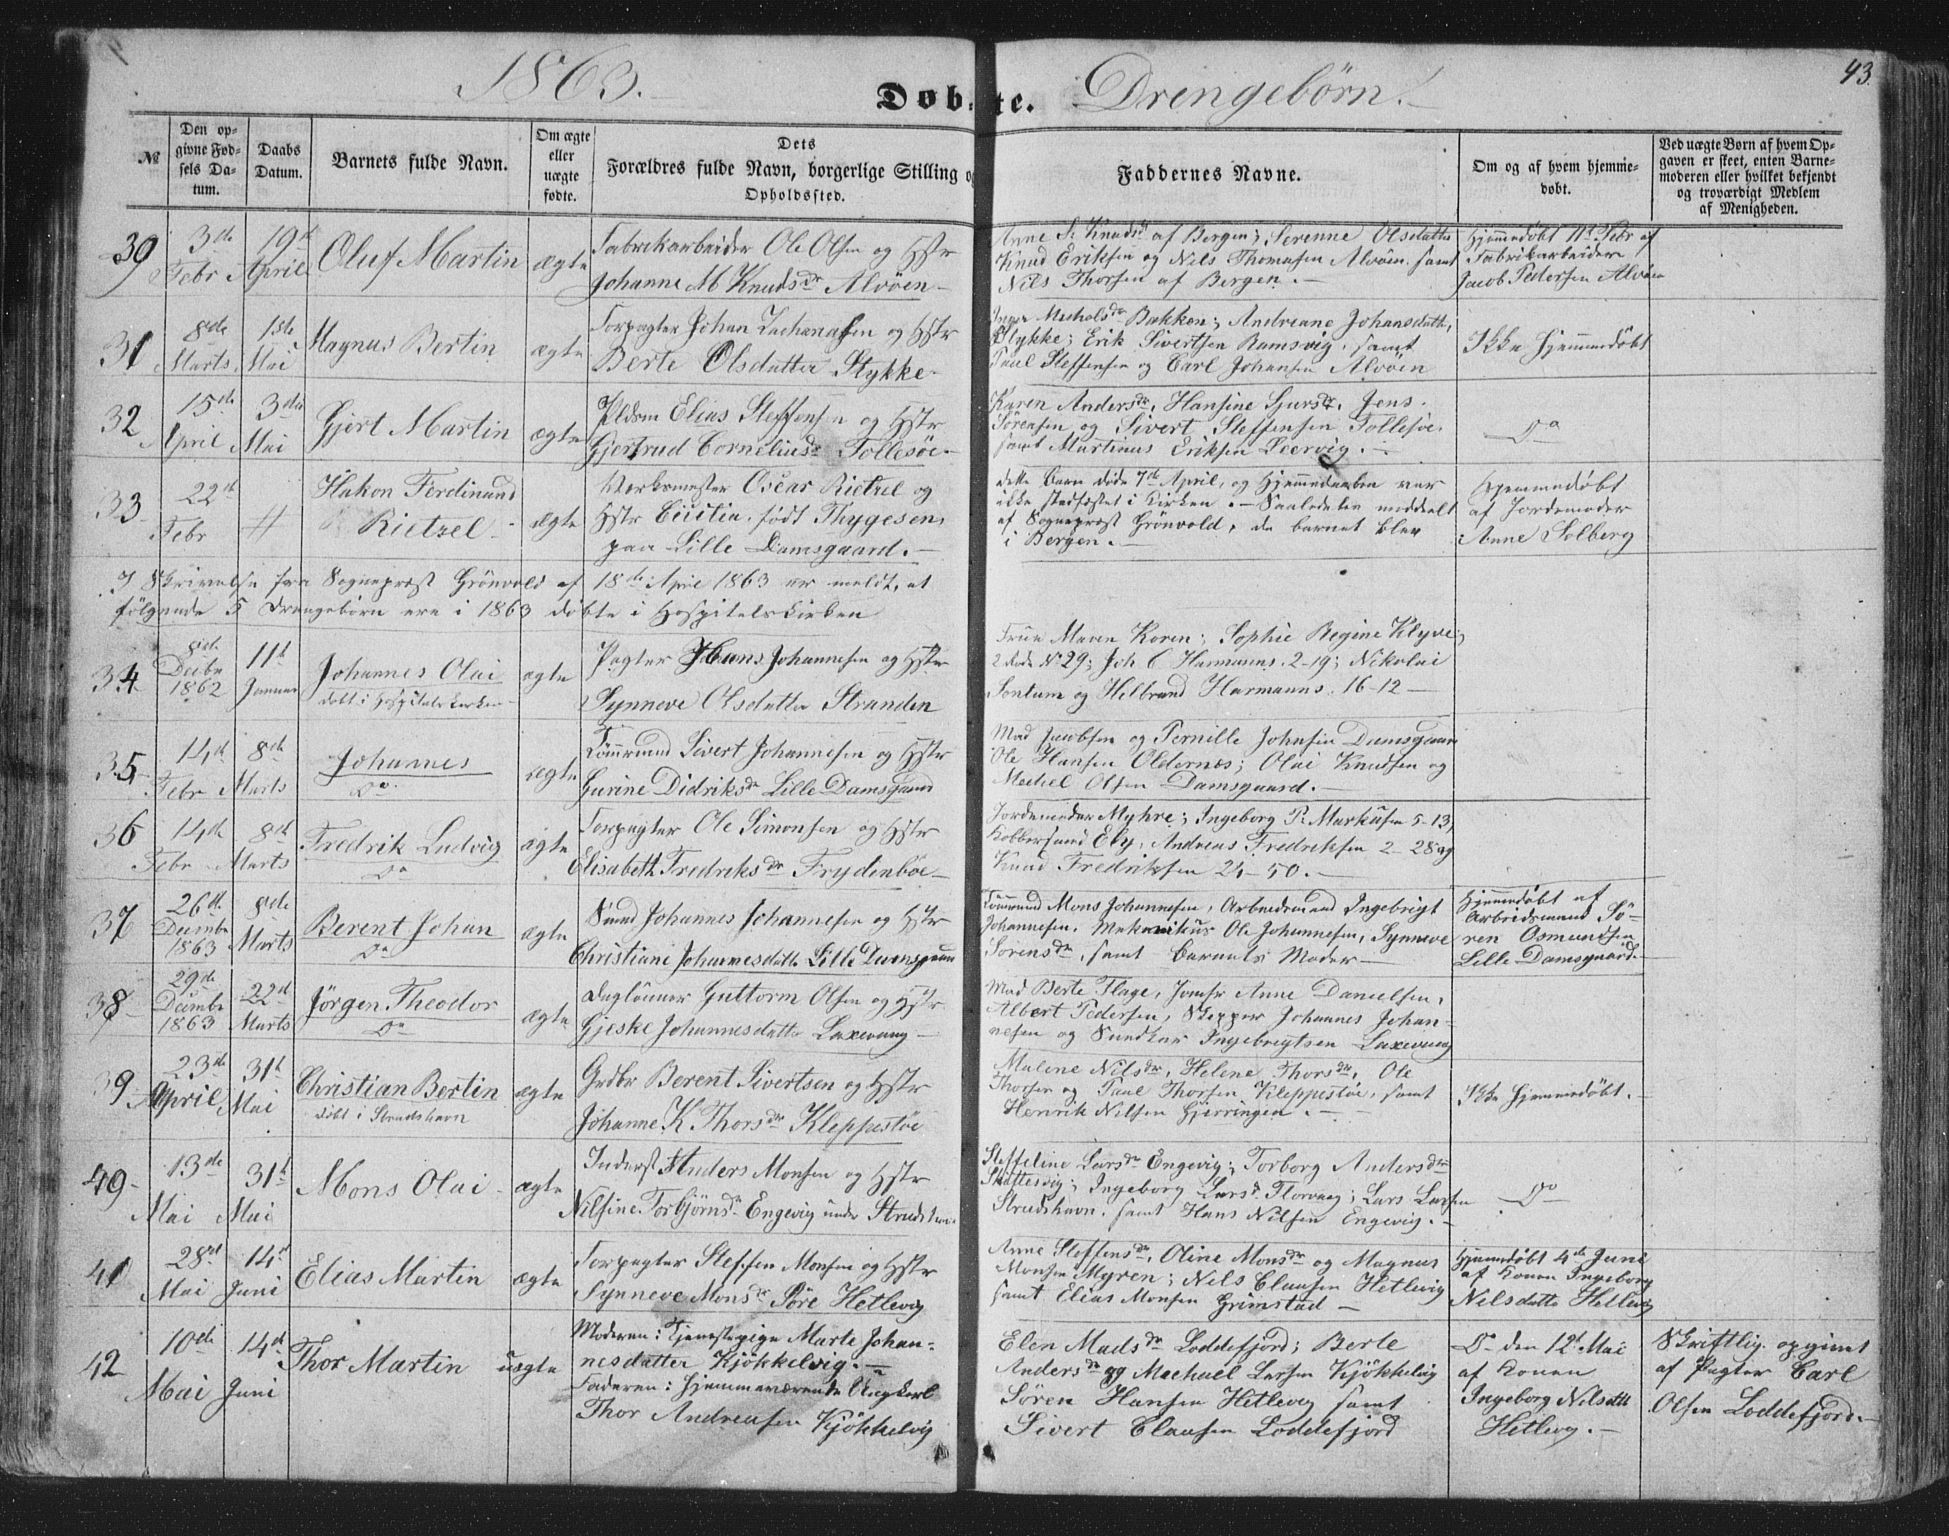 1863.
Døbte. Drengebørn.
43.
№
Den op-
givne Fød-
sels Da-
tum.
Daabs
Datum.
Barnets fulde Navn.
Om ægte
eller
uægte
fødte.
Dets
Forældres fulde Navn, borgerlige Stilling og
Opholdssted.
Faddernes Navne.
Om og af hvem hjemme-
døbt.
Ved uægte Børn af hvem Op-
gaven er skeet, enten Barne-
moderen eller hvilket bekjendt
og troværdigt Medlem
af Menigheden.
39
3de
Febr
19de
April
Oluf Martin
ægte
Fabrikarbeider Ole Olsen og Hstr
Johanne M Knudsdr Alvöen
Anne S. Knudsd af Bergen; Serenne Olsdatter
Knud Eriksen og Nils Thomasen Alvöen samt
Nils Thorsen af Bergen.
Hjemmedöbt 11t Febr af
Fabrikarbeider
Jacob Pedersen Alvöen
31
8de
Marts
1ste
Mai
Magnus Bertin
ægte
Forpagter Johan Zachariasen og Hstr
Berte Olsdatter Stykke
Bakken; Andreane Johansdatter,
Stykke; Erik Sivertsen Ramsvig, samt
Paul Steffensen og Carl Johansen Alvöen
Ikke Hjemmedöbt
32
15de
April
3die
Mai
Gjert Martin
ægte
Pldsm Elias Steffensen og Hstr
Gjertrud Corneliusdr Follesöe
Karen Andersdr, Hansine Sjursdr, Jens
Sörensen og Sivert Steffensen Follesöe
samt Martinus Eriksen Leervig.
Do
33
22de
Febr
#
Hakon Ferdinand
Rietzel
ægte
Værksmester Oscar Rietzel og
Hstr födt Thygesen
paa Lille Damsgaard.
dette Barn döde 7de April, og Hjemmedaaben var
ikke stadfæstet i Kirken. Saaledes meddelt
af Sognepræst Grönvold, da barnet blev
i Bergen.
Hjemmedöbt
af Jordemoder
Anne Solberg
I Skrivelse fra Sognepræst Grönvold af 18de April 1863 er meldt, at
fölgende 5 Drengebörn ere i 1863 döbte i Hospitalskirken
34
8de
Decbr
1862
11te
Januar
Johannes Olai
döbt i Hospitalskirken
ægte
Pagter Hans Johannesen og Hstr
Synneve Olsdatter Stranden
Frue Maren Koren; Sophie Regine Klyve;
2 Rode No 29; Joh C Harmanns. 2-19; Nikolai
Sontum og Hilbrand Harmanns. 16-12
35
14de
Febr
8de
Marts
Johannes
Do
ægte
Tömmrmand Sivert Johannesen og Hstr
Gurine Didriksdr Lille Damsgaard
Mad Jacobsen og Pernille Johnsen Damsgaard
Ole Hansen Oldernes; Olai Knudsen og
Mechel Olsen Damsgaard.
36
14de
Febr
8de
Marts
Fredrik Ludvig
Do
ægte
Forpagter Ole Simonsen og Hstr
Elisabeth Fredriksdr Frydenböe
Jordemoder Myhre; Ingeborg P. Markusen 5-13,
Kobbersmed Eby, Andreas Fredriksen 2-28 og
Knud Fredriksen 24-50.
37
26de
Decembr
1863
8de
Marts
Berent Johan
Do
ægte
Smed Johannes Johannesen og Hstr
Christiane Johannesdatter Lille Damsgaard
Tömmrmand Mons Johannesen, Arbeidsmand Ingebrigt
Johannesen, Mekanikus Ole Johannesen, Synneve
Sörensdr, samt Barnets Moder
Hjemmedöbt af
Arbeidsmand Sö-
ren Osmundsen
Lille Damsgaard.
38
29de
Decembr
1863
22de
Marts
Jörgen Theodor
Do
ægte
Daglönner Guttorm Olsen og Hstr
Gjeske Johannesdatter Laxevaag
Mad Berte Flage, Jomfr Anne Danielsen,
Albert Pedersen, Skipper Johannes Johan-
nesen og Ingebrigtsen Laxevaag
39
23de
April
31te
Mai
Christian Bertin
döbt i Strudshavn
ægte
Grdbr Berent Sivertsen og Hstr
Johanne K Thorsdr Kleppestöe
Malene Nilsdr, Helene Thorsdr, Ole
Thorsen og Paul Thorsen Kleppestöe, samt
Henrik Nilsen Gjerringen.
Ikke Hjemmedöbt.
40
13de
Mai
31te
Mai
Mons Olai
ægte
Inderst Anders Monsen og Hstr
Nilsine Torbjörnsdr Engevig under Strudshavn
Steffeline Larsdr Engevig; Torborg Andersdr
Skottevig; Ingeborg Larsd. Florvaag; Lars Larsen
Strudshavn, samt Hans Nilsen Engevig.
Do
41
28de
Mai
14de
Juni
Elias Martin
ægte
Forpagter Steffen Monsen og Hstr
Synneve Monsdr Söre Hetlevig
Anne Steffensdr, Oline Monsdr og Magnus
Monsen Myren; Nils Clausen Hetlevig
samt Elias Monsen Grimstad
Hjemmedöbt 4de Juni
af Konen Ingeborg
Nilsdatter Hetlevig
42
10de
Mai
14de
Juni
Thor Martin
uægte
Moderen: Tjenestepige Marte Johan-
nesdatter Kjökkelvig.
Faderen: Hjemmeværende Ungkarl
Thor Andreasen Kjökkelvig
Elen Madsdr Loddefjord; Berte
Andersdr og Machael Larsen Kjökkelvig
Sören Hansen Hetlevig samt
Sivert Clausen Loddefjord
Do den 12t Mai
af Konen
Ingeborg Nilsdtr
Hetlevig.
Skriftlig opgivet
af Pagter Carl
Olsen Loddefjord.